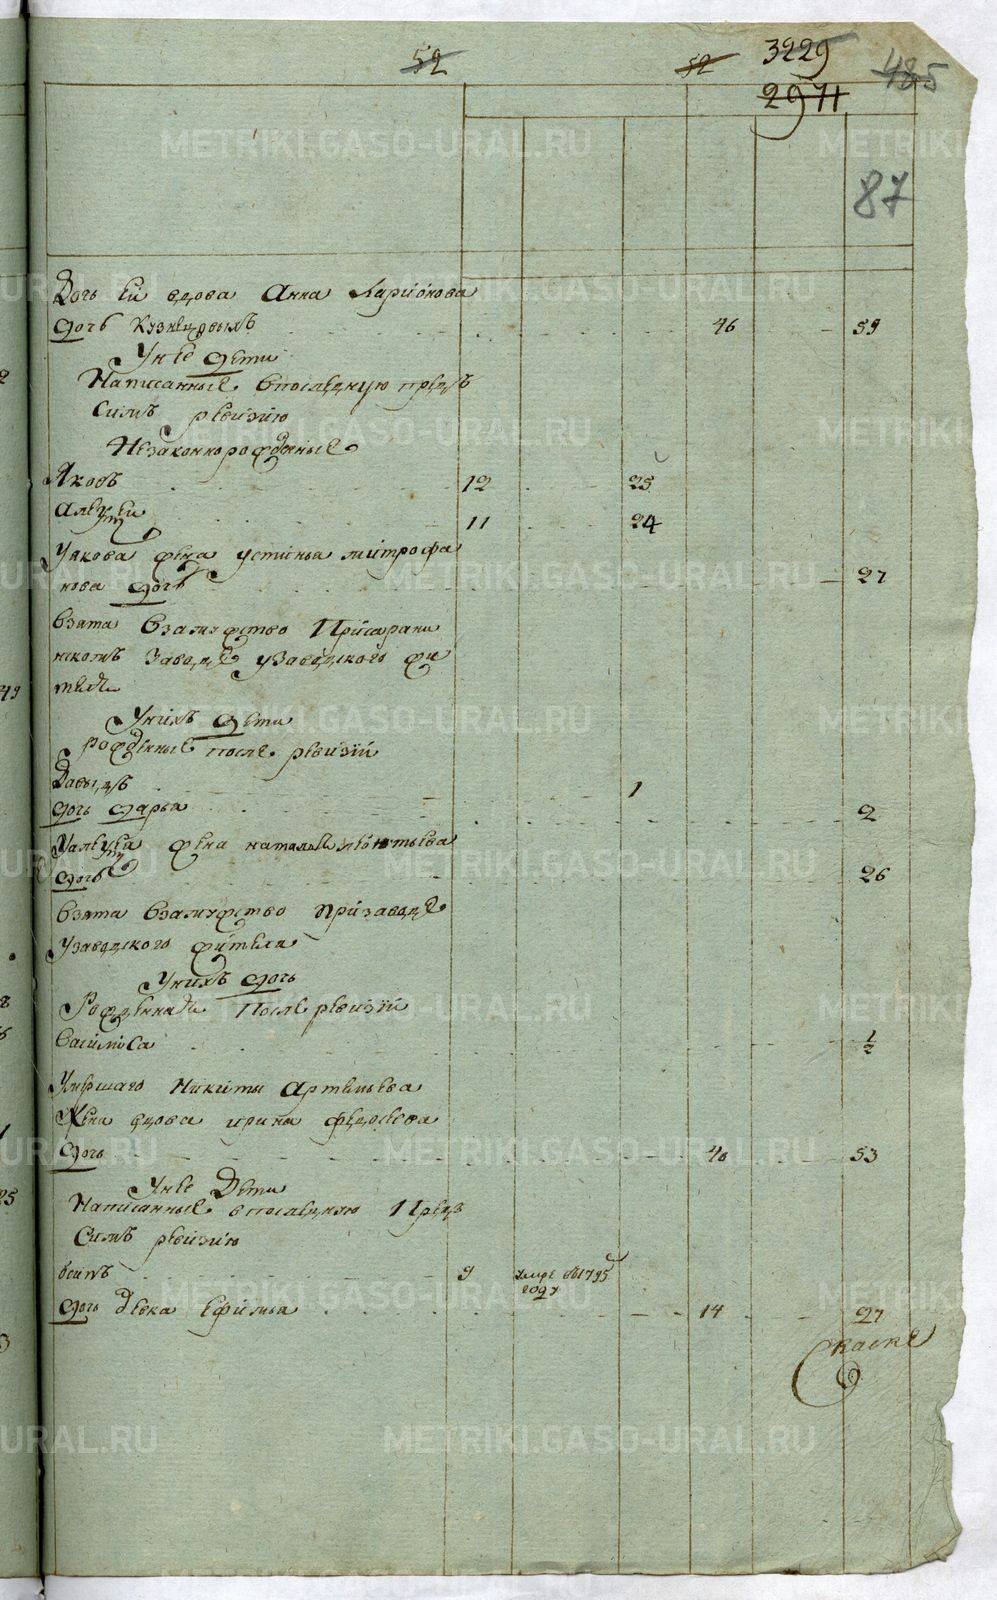 52 52 3225 485
2971
87
Дочь ей вдова Анна Ларионова
дочь Кузнецовыхъ 46 59
У нее дети
Написанные впоследнюю предъ
симъ ревизию
Незаконнорожденные
Яковъ 12 25
Алексей 11 24
Уякова жена устинья митрофа
нова дочь 27
взята взамужство При
скомъ заводе узаводского жи
теля
Унихъ дети
рожденные после ревизий
Давыдъ 1
дочь дарья 2
Уалексея жена наталья леонтьева
дочь 26
взята взамужство призаводе
узаводского жителя
Унихъ дочь
Рожденная После ревизий
Василиса 1/2
Умершаго Никиты Артемьева
Жена вдова ирина федосеева
дочь 40 53
Унее Дети
Написанные впоследнюю Предъ
Симъ ревизию
осипъ 9 умре в 1795
году
дочь девка Ефимья 14 27
Скаске
METRIKI.GASO-URAL.RU